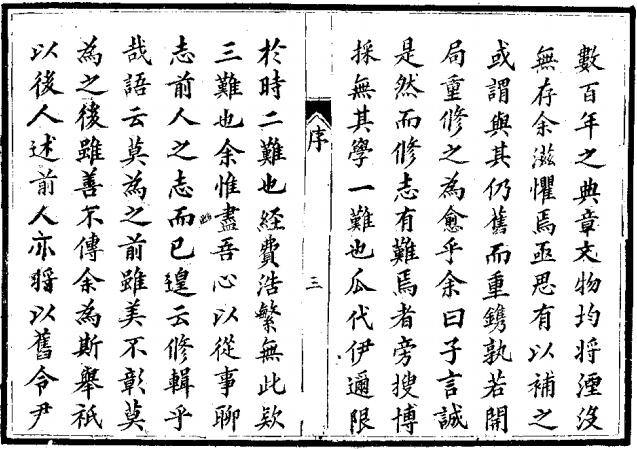 數百年之典章文物均將湮沒
無存余滋懼焉亟思有以補之
或謂與其仍舊而重鐫孰若開
局重修之為愈乎余曰子言誠
是然而修志有難焉者旁搜博
採無其學一難也瓜代伊邇限
序
三
於時二難也經費浩繁無此款
三難也余惟盡吾心以從事聊
志前人之志而已遑云修輯乎
哉語云莫為之前雖美不彰莫
為之後雖善不傳余為斯舉祇
以後人述前人亦將以舊令尹